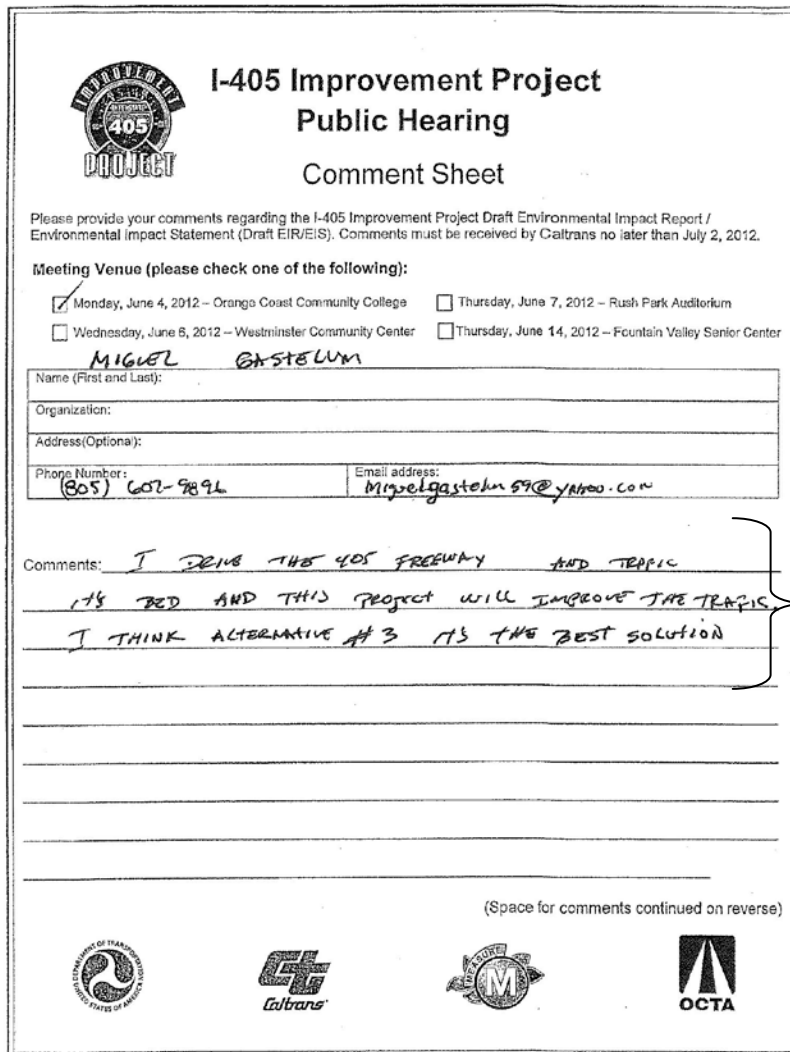 IMPROVEMENT
INTERSTATE
405
PROJECT
I-405 Improvement Project
Public Hearing
Comment Sheet
Please provide your comments regarding the I-405 Improvement Project Draft Environmental Impact Report /
Environmental Impact Statement (Draft EIR/EIS). Comments must be received by Caltrans no later than July 2, 2012.
Meeting Venue (please check one of the following):
Monday, June 4, 2012 – Orange Coast Community College
Thursday, June 7, 2012 – Rush Park Auditorium
Wednesday, June 6, 2012 – Westminster Community Center
Thursday, June 14, 2012 – Fountain Valley Senior Center
MIGUEL GASTELUM
Name (First and Last):
Organization:
Address(Optional):
Phone Number: (805) 602-9896
Email address: Miguelgastelum59@yahoo.com
Comments: I DRIVE THE 405 FREEWAY AND TRAFIC
IT'S BED AND THIS PROJECT WILL IMPROVE THE TRAFIC.
I THINK ALTERNATIVE #3 IT'S THE BEST SOLUTION
(Space for comments continued on reverse)
DEPARTMENT OF TRANSPORTATION
UNITED STATES OF AMERICA
Caltrans
MEASURE
M
OCTA